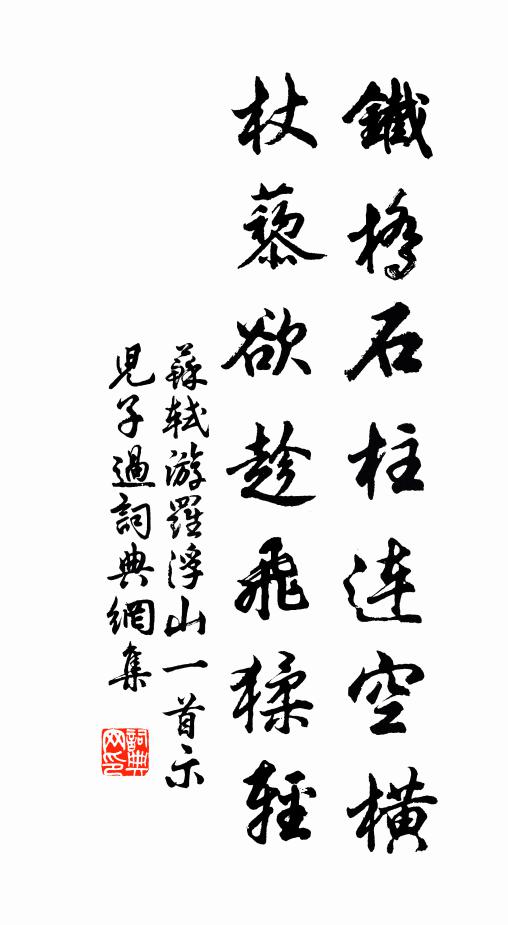 鐵橋石柱連空橫
杖藜欲趁飛猱輕
蘇軾游羅浮山一首示
兒子過詞典網集
詞典
网印